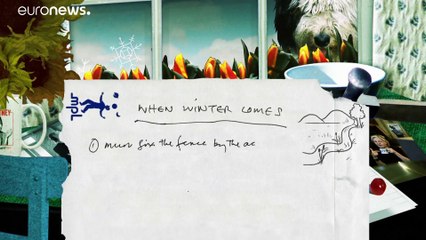 euronews.
mpl
WHEN WINTER COMES
① must fix the fence by the ac